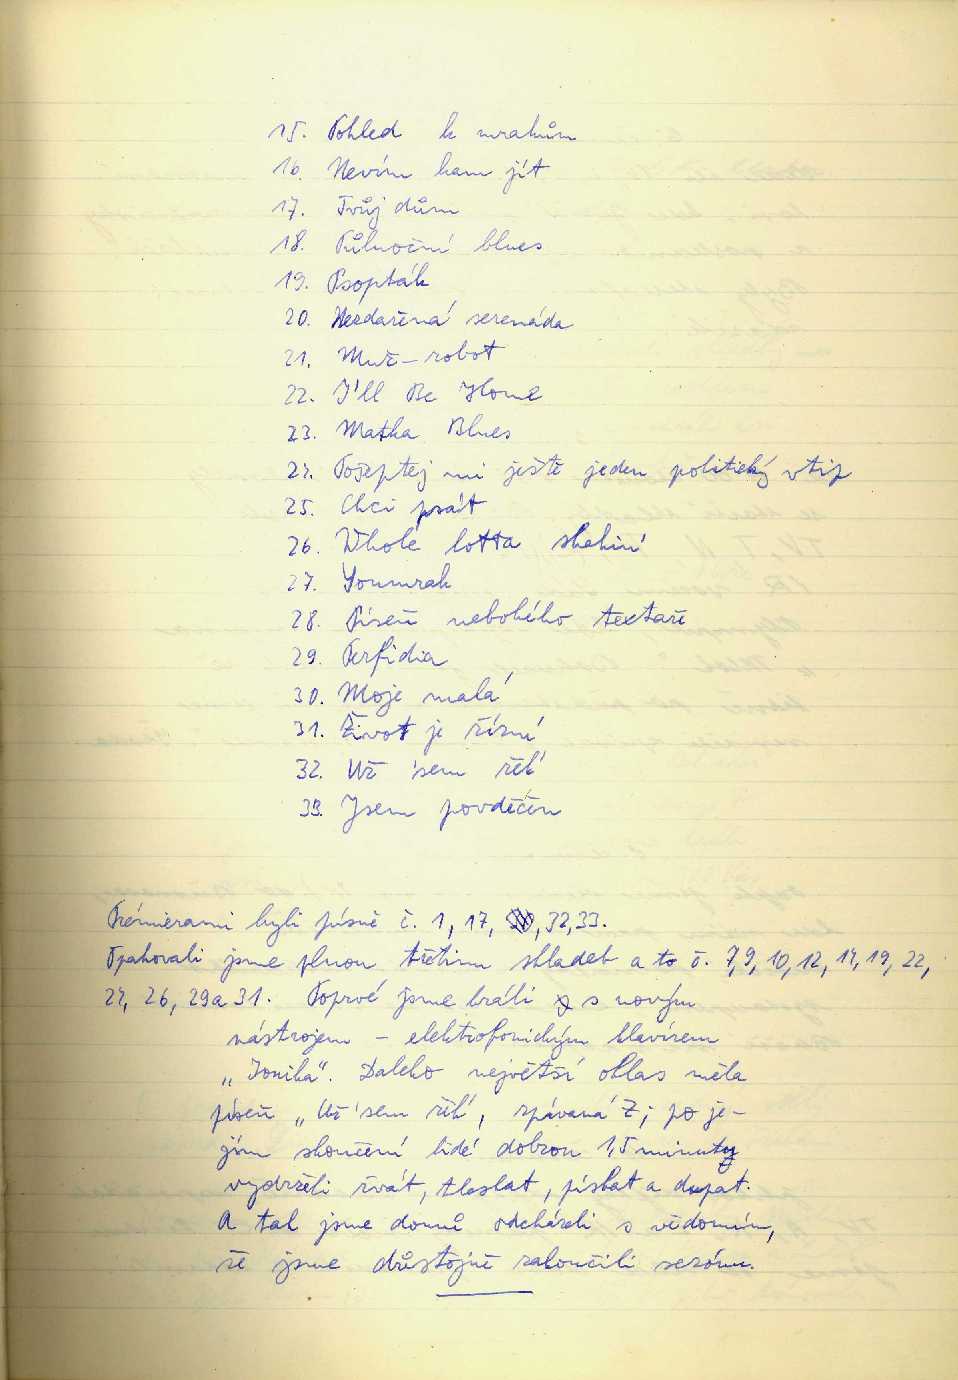 15. Pohled k mrakům
16. Nevím kam jít
17. Tvůj dům
18. Půlnoční blues
19. Psopták
20. Nezdařená serenáda
21. Muž – robot
22. I'll Be Home
23. Matka Blues
24. Pošeptej mi ještě jeden politický vtip
25. Chci psát
26. Whole lotta shakin'
27. Soumrak
28. Píseň nebohého textaře
29. Perfidia
30. Moje malá
31. Život je řízný
32. Už 'sem řek'
33. Jsem povděčen
Prémierami byli písně č. 1, 17, 32, 33.
Opakovali jsme plnou třetinu skladeb a to č. 7, 9, 10, 12, 14, 19, 22,
24, 26, 29 a 31. Poprvé jsme hráli s novým
nástrojem – elektrofonickým klavírem
„Ionika". Daleko největší ohlas měla
píseň „Už 'sem řek', zpívaná Z; po je-
jím skončení lidé dobrou 1,5 minuty
vydrželi řvát, tleskat, pískat a dupat.
A tak jsme domů odcházeli s vědomím,
že jsme důstojně zakončili sezónu.